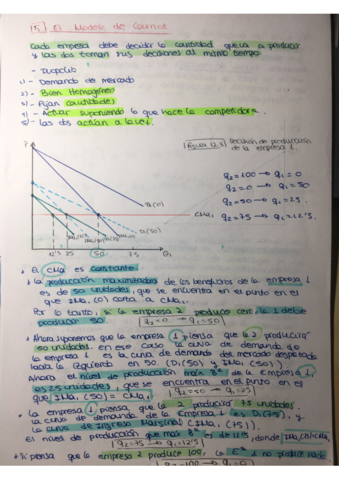 5. El Modelo de Cournot
Cada empresa debe decidir la cantidad que va a producir
y las dos toman sus decisiones al mismo tiempo
- Duopolio
1) - Demanda de mercado
2) - Bien Homogéneo
3) - Fijan cantidades
4) - Actuar suponiendo lo que hace la competidora.
5) - Las dos actúan a la vez.
Figura 12.3 Decisión de producción
de la empresa 1.
P
q₂=100 → q₁=0
q₂=0 → q₁=50
q₂=50 → q₁=25
q₂=75 → q₁=12'5
D₁(0)
CMa₁
D₁(50)
12'5 25 50 75 Q₁
• El CMa es constante
• La producción maximizadora de los beneficios de la empresa 1
es de 50 unidades, que se encuentra en el punto en el
que IMa₁(0) corta a CMa₁.
Por lo tanto, si la empresa 2 produce cero, la 1 debe
producir 50. q₂=0 → q₁=50
• Ahora suponemos que la empresa 1 piensa que la 2 producirá
50 unidades. en este caso la curva de demanda de
la empresa 1 es la curva de demanda del mercado desplazada
hacia la izquierda en 50 (D₁(50) y IMa₁(50))
Ahora el nivel de producción que max Bº de la Empresa 1,
es 25 unidades, que se encuentra en el punto en
que IMa₁(50) = CMa₁. q₂=50 → q₁=25
• La empresa 1 piensa que la 2 producirá 75 unidades.
La curva de demanda de la Empresa 1 es D₁(75), y
la curva de Ingreso Marginal (IMa₁(75)).
El nivel de producción que max Bº es de 12'5, donde IMa₁(75)=CMa₁
q₂=75 → q₁=12'5
• Si piensa que la empresa 2 produce 100, la Eª 1 no produce nada
q₂=100 → q₁=0